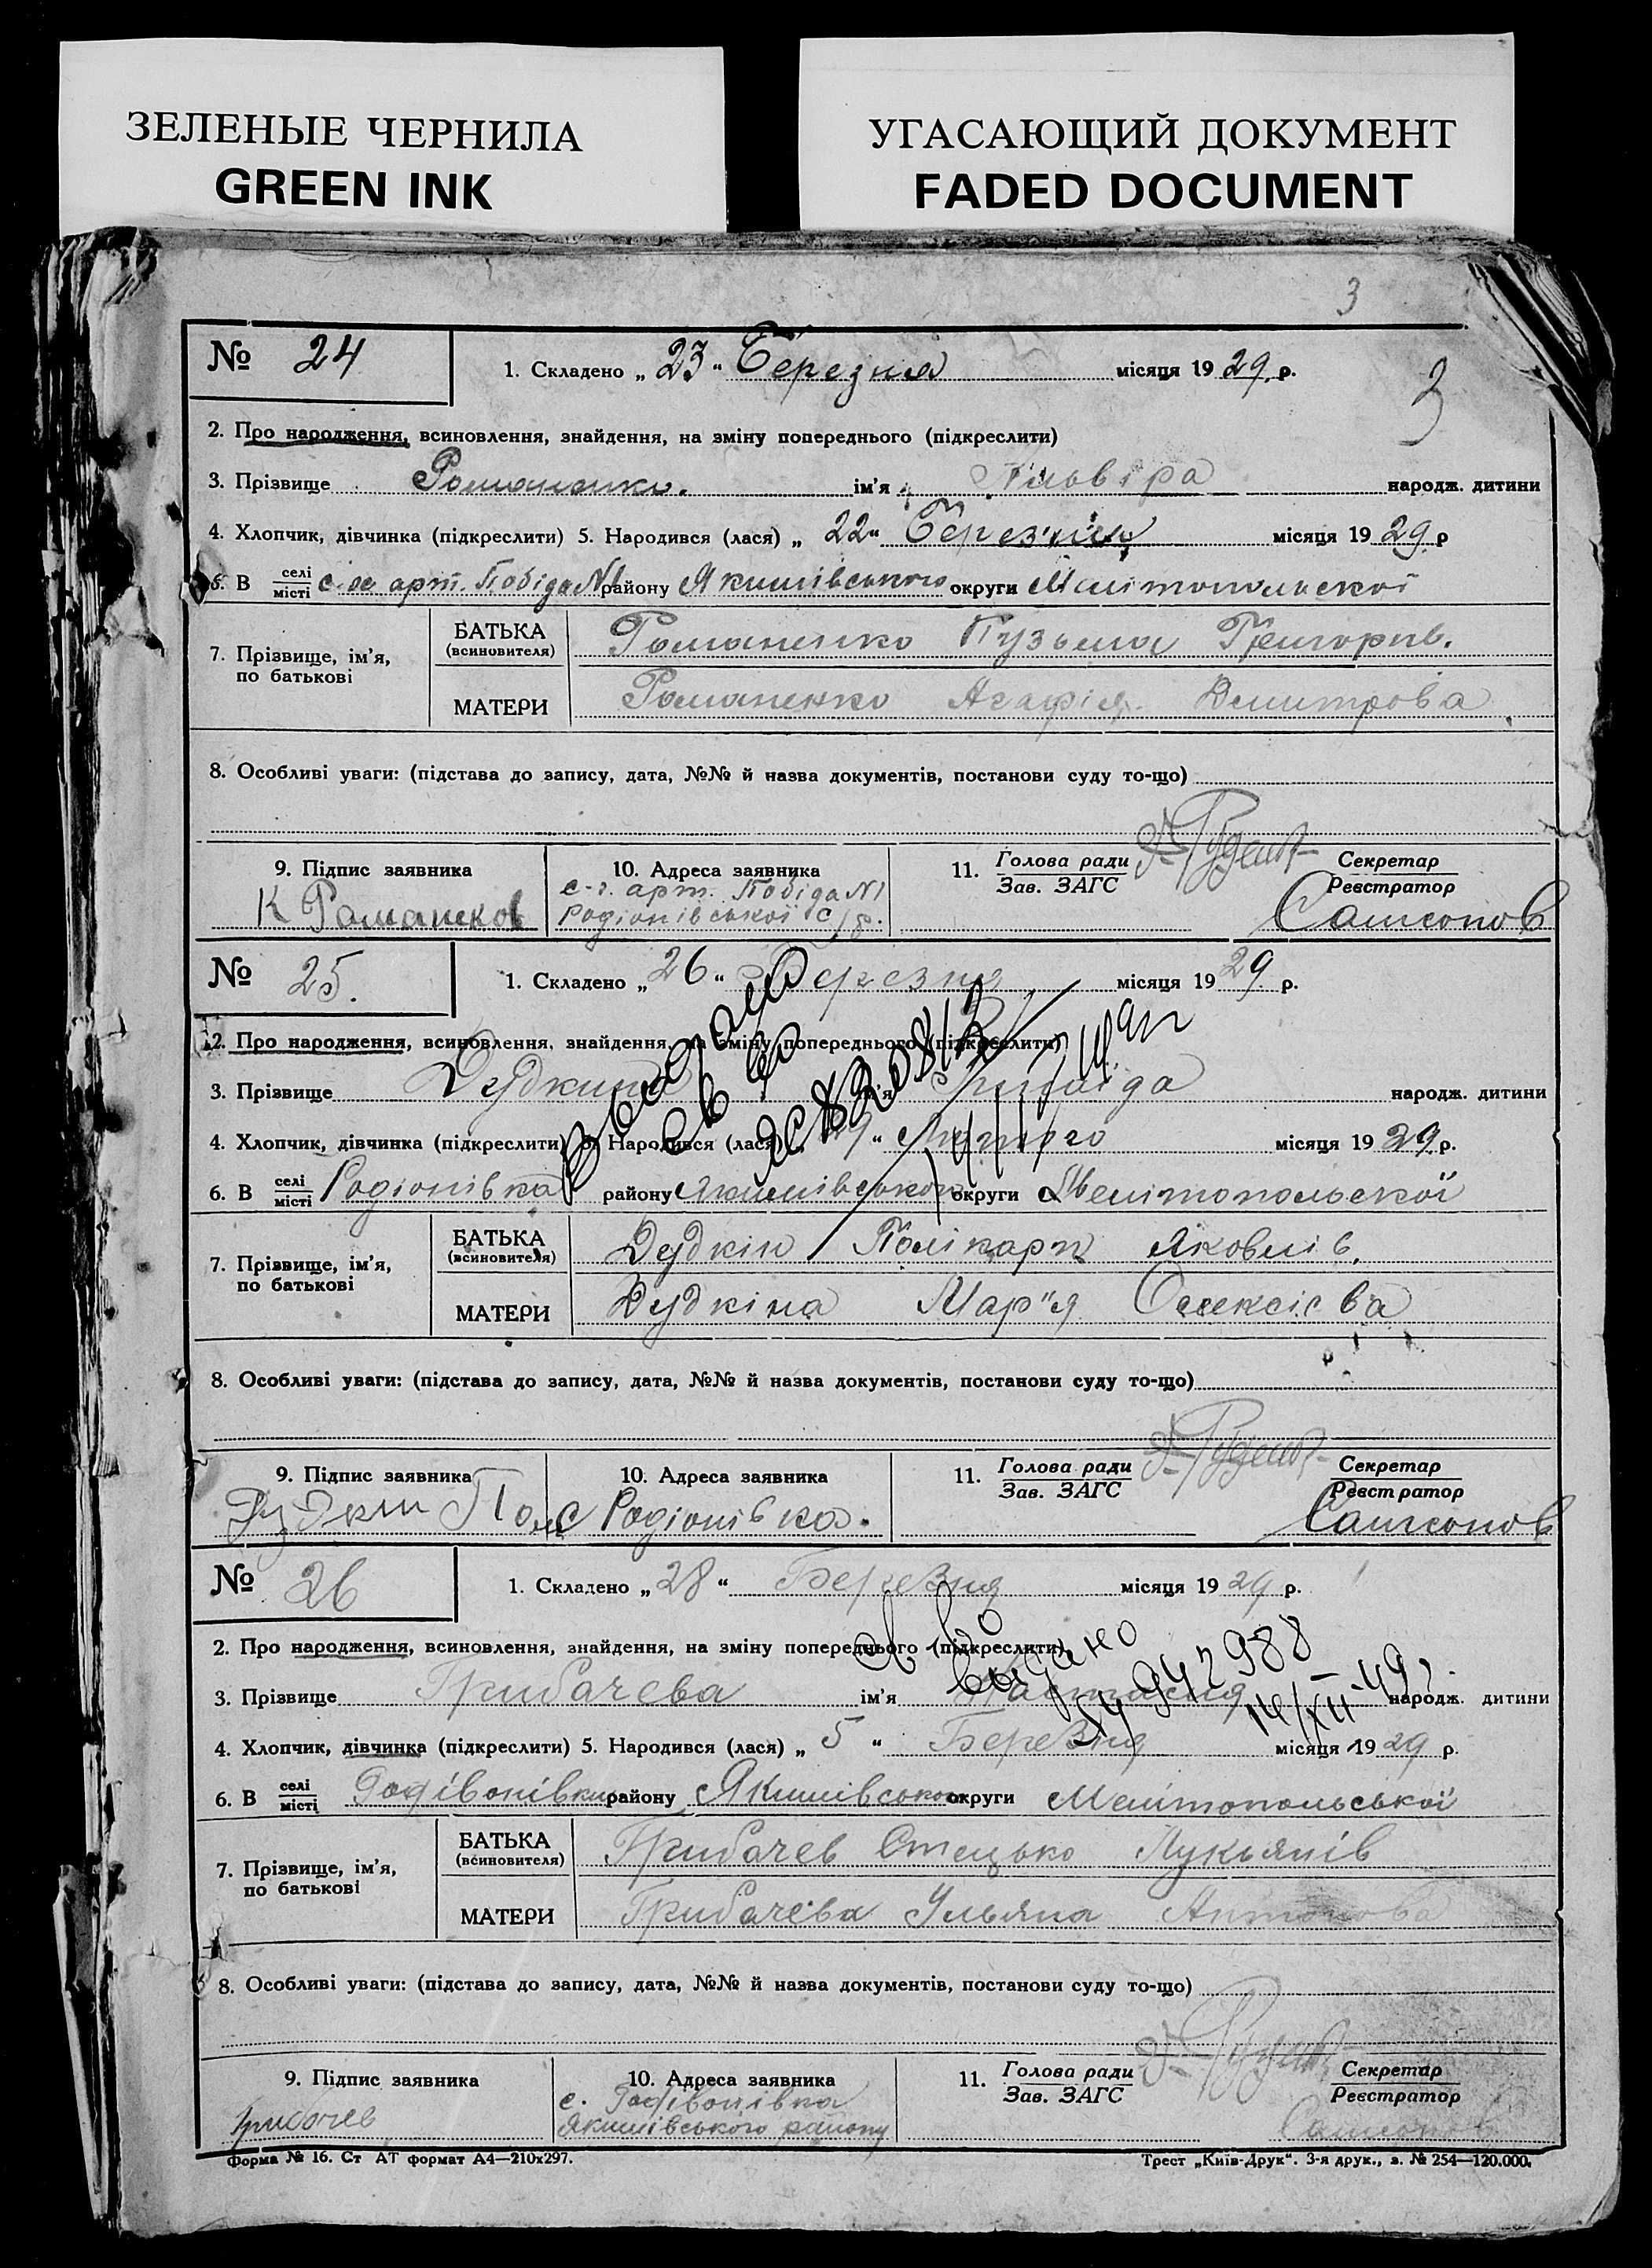 ЗЕЛЕНЫЕ ЧЕРНИЛА
GREEN INK
УГАСАЮЩИЙ ДОКУМЕНТ
FADED DOCUMENT
3
3
№ 24
1. Складено „ 23 “ Березня місяця 19 29 р.
2. Про народження, всиновлення, знайдення, на зміну попереднього (підкреслити)
3. Прізвище Романенко. ім'я народж. дитини
4. Хлопчик, дівчинка (підкреслити) 5. Народився (лася) „ 22 “ Березня місяця 19 29 р
6. В селі місті арт. Побіда N1 району Якимівського округи Мелітопольскої
7. Прізвище, ім'я, по батькові
БАТЬКА (всиновителя) Романенко Кузьма Григорів.
МАТЕРИ Романенко Агафія Дмитрова
8. Особливі уваги: (підстава до запису, дата, №№ й назва документів, постанови суду то-що)
9. Підпис заявника
К Романков
10. Адреса заявника
с-г. арт. Побіда N1
Родіонівської с/р.
11. Голова ради Зав. ЗАГС
Секретар Реєстратор
Самсонов
№ 25.
1. Складено „ 26 “ Березня місяця 19 29 р.
2. Про народження, всиновлення, знайдення, на зміну попереднього (підкреслити)
3. Прізвище Дудкина ім'я Зинаїда народж. дитини
4. Хлопчик, дівчинка (підкреслити) 5. Народився (лася) „ 19 “ Лютого місяця 19 29 р.
6. В селі місті Родіонівка району Якимівського округи Мелітопольскої
7. Прізвище, ім'я, по батькові
БАТЬКА (всиновителя) Дудкін Полікарп Яковлів.
МАТЕРИ Дудкіна Мар"я Олексієва
8. Особливі уваги: (підстава до запису, дата, №№ й назва документів, постанови суду то-що)
9. Підпис заявника
10. Адреса заявника
с Родіонівка.
11. Голова ради Зав. ЗАГС
Секретар Реєстратор
Самсонов
№ 26
1. Складено „ 28 “ Березня місяця 19 29 р.
2. Про народження, всиновлення, знайдення, на зміну попереднього (підкреслити)
св во
выдано
942988
14/XII-49г.
3. Прізвище Грибачева ім'я народж. дитини
4. Хлопчик, дівчинка (підкреслити) 5. Народився (лася) „ 5 “ Березня місяця 19 29 р.
6. В селі місті Родівонівки району Якимівського округи Мелітопольської
7. Прізвище, ім'я, по батькові
БАТЬКА (всиновителя) Грибачев Стецько Лукьянів
МАТЕРИ Грибачева Ульяна Антонова
8. Особливі уваги: (підстава до запису, дата, №№ й назва документів, постанови суду то-що)
9. Підпис заявника
Грибачев
10. Адреса заявника
с. Родівонівка
Якимівського району
11. Голова ради Зав. ЗАГС
Секретар Реєстратор
Самсонов
Форма № 16. Ст АТ формат А4—210х297.
Трест „Київ-Друк“. 3-я друк., з. № 254—120.000.